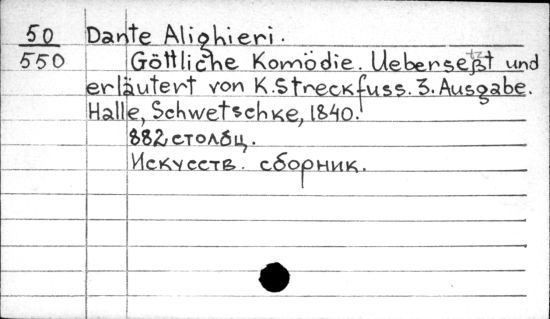 50 Dante Alighieri.
550 Göttliche Komödie. Uebersetzt und
erläutert von K. Streckfuss. 3. Ausgabe.
Halle, Schwetschke, 1840.
882 столбц.
Искусств. сборник.